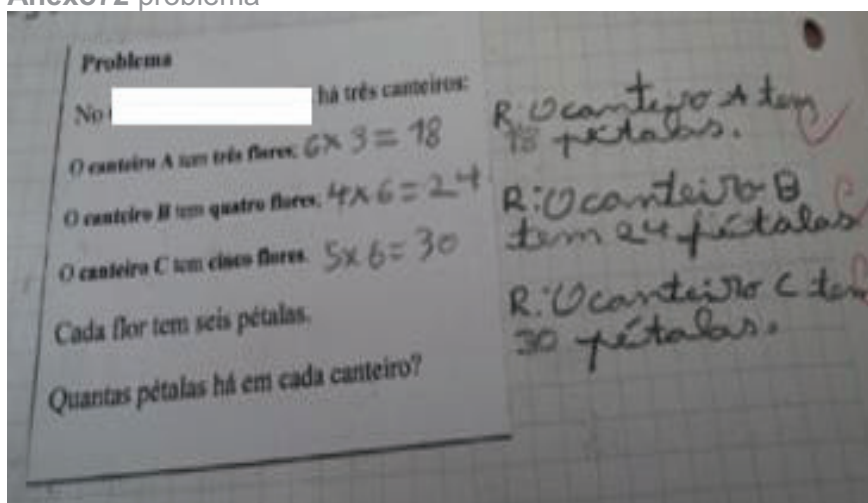 Anexo72 problema
Problema
No
há três canteiros:
O canteiro A tem três flores; 6 × 3 = 18
O canteiro B tem quatro flores; 4 × 6 = 24
O canteiro C tem cinco flores. 5 × 6 = 30
Cada flor tem seis pétalas.
Quantas pétalas há em cada canteiro?
R: O canteiro A tem
18 pétalas.
R: O canteiro B
tem 24 pétalas
R: O canteiro C tem
30 pétalas.